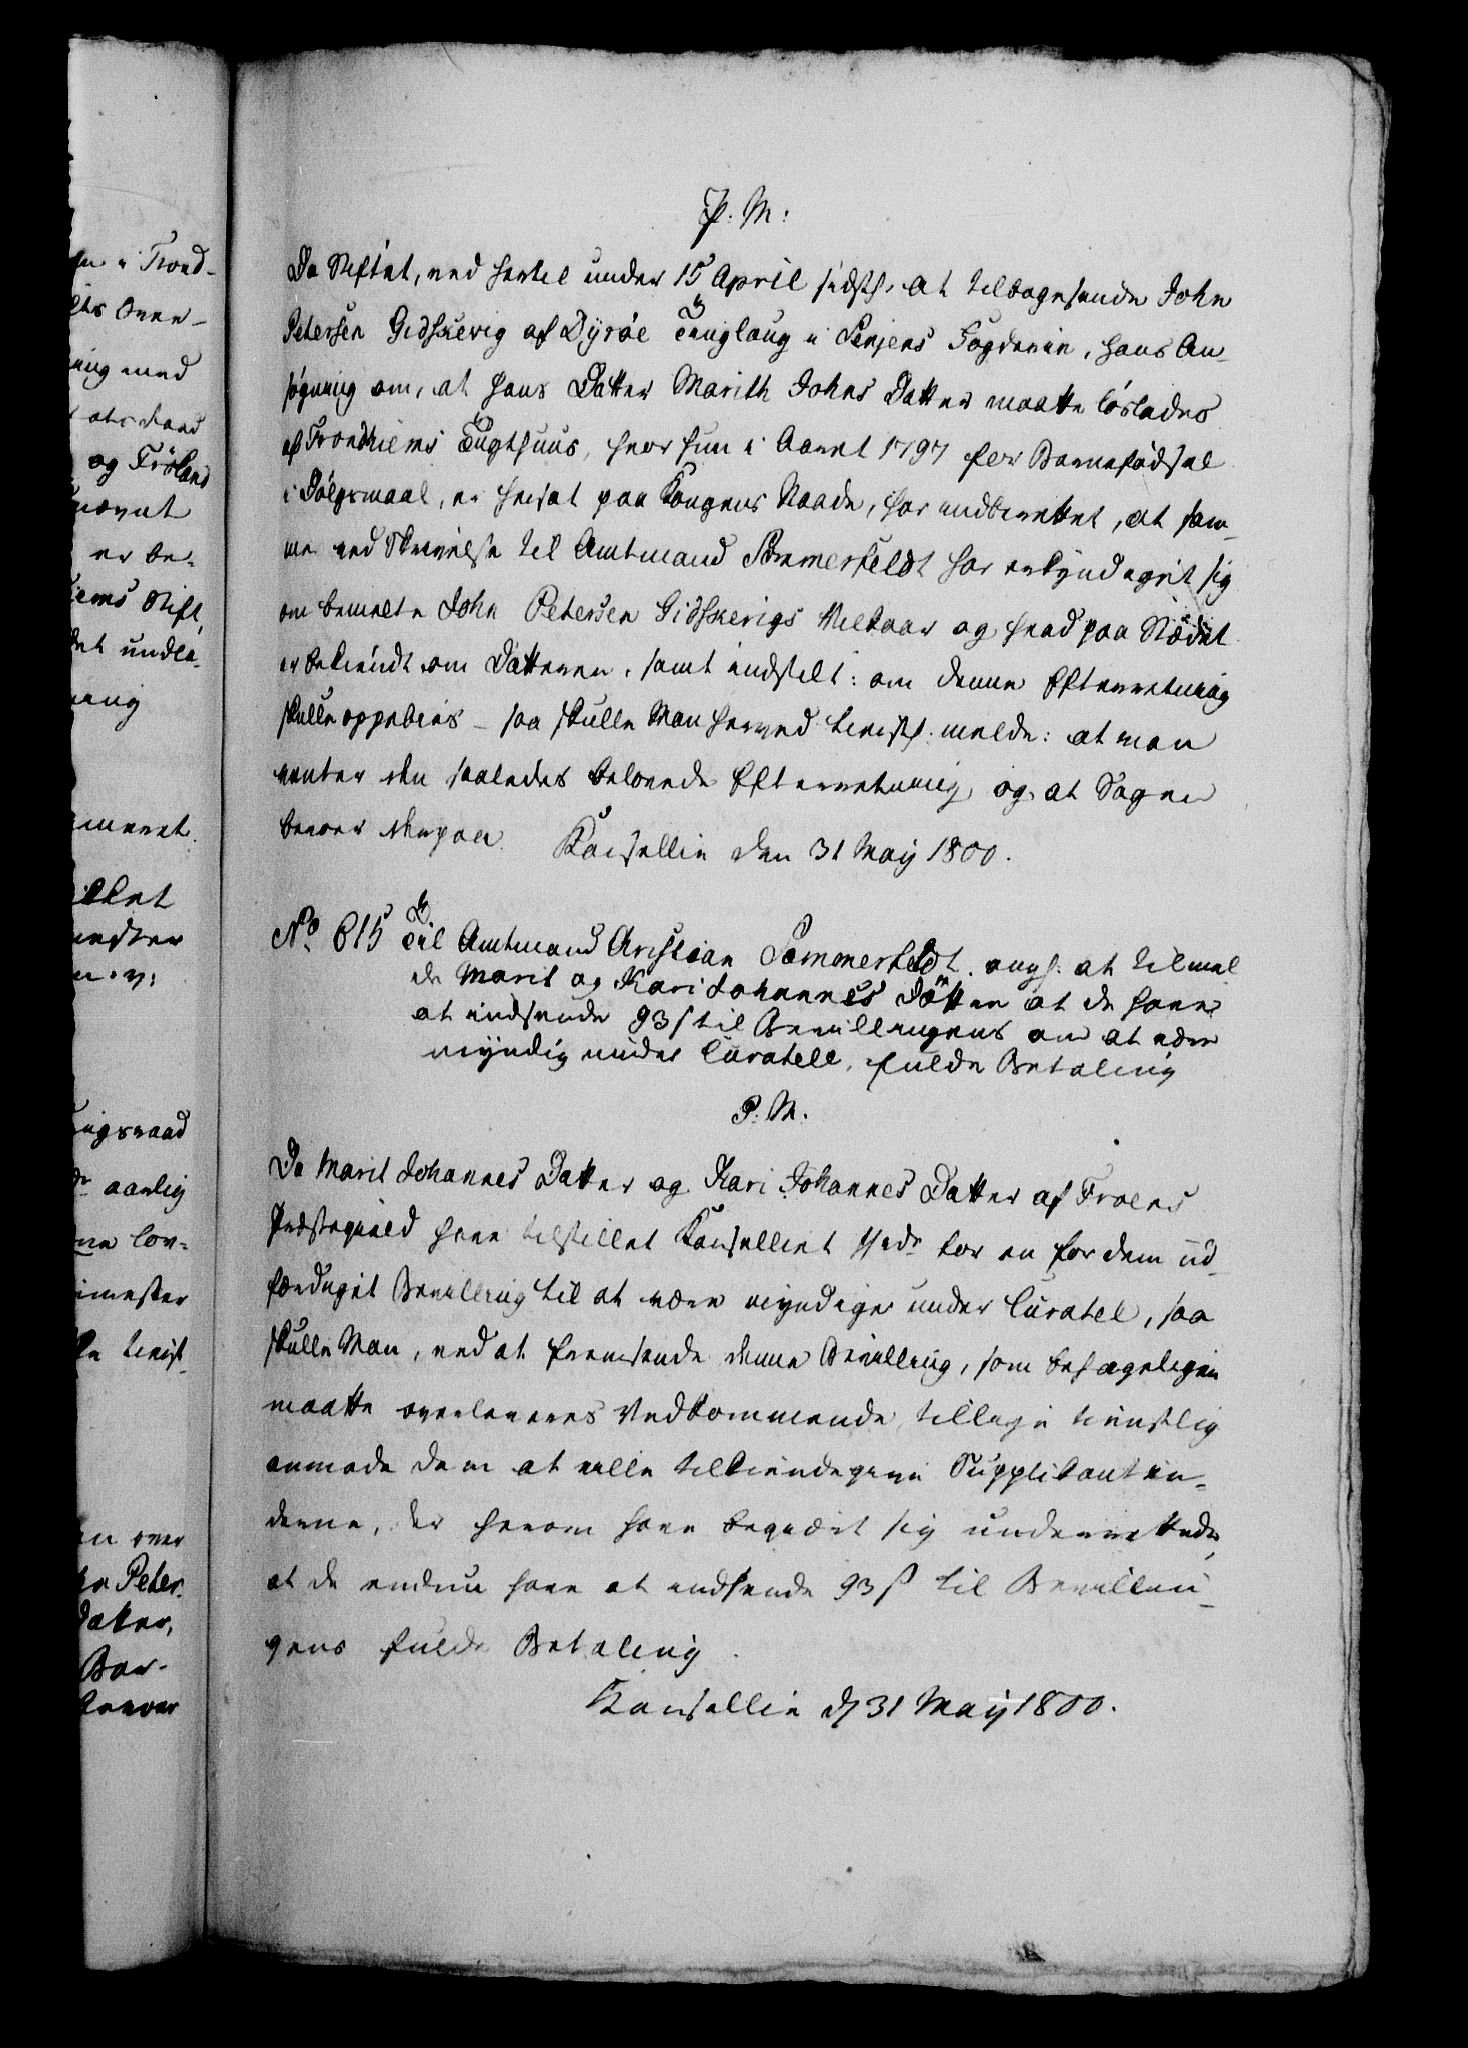 P. M:
Da Stiftet, ved hertil under 15 April sidstl. at tilbagesende John
Petersen Gidskevig af Dyröe Tinglaug i Senjens Fogderie, hans An-
søgning om, at hans Datter Marith Johns Datter maatte løslades
af Trondhiems Tugthuus, hvor hun i Aaret 1797 for Barnefødsel
i Dølgsmaal, er hensat paa Kongens Naade, har indberettet, at sam-
me ved Skrivelse til Amtmand Sommerfeldt har erkyndiget sig
om bemeldte John Petersen Gidskevigs Vilkaar og hvad paa Stædet
er bekiendt om Datteren, samt indstilt: om denne Efterretning
skulle oppebies - saa skulle Man herved tienstl. melde: at man
venter den saaledes belovede Efterretning, og at Sagen
beroer derpaa. Kancellie den 31 May 1800.
No. 615 Til Amtmand Christian Sommerfeldt. angl. at tilmel
de Marit og Kari Johannes Døttre at de have
at indsende 93 s til Bevillingens om at være
myndig under Curatell, fulde Betaling
P. M.
Da Marit Johannes Datter og Kari Johannes Datter af Froens
Præstegield have tilstillet Kancelliet for en for dem ud-
færdiget Bevilling til at være myndige under Curatel, saa
skulle Man, ved at fremsende denne Bevilling, som behageligen
maatte overleveres Vedkommende, tillige tienstlig
anmode dem at ville tilkiendegive Supplikantin-
derne, der herom have begiært sig underrettede,
at de endnu have at indsende 93 s til Bevillin-
gens fulde Betaling.
Kancellie d 31 May 1800.